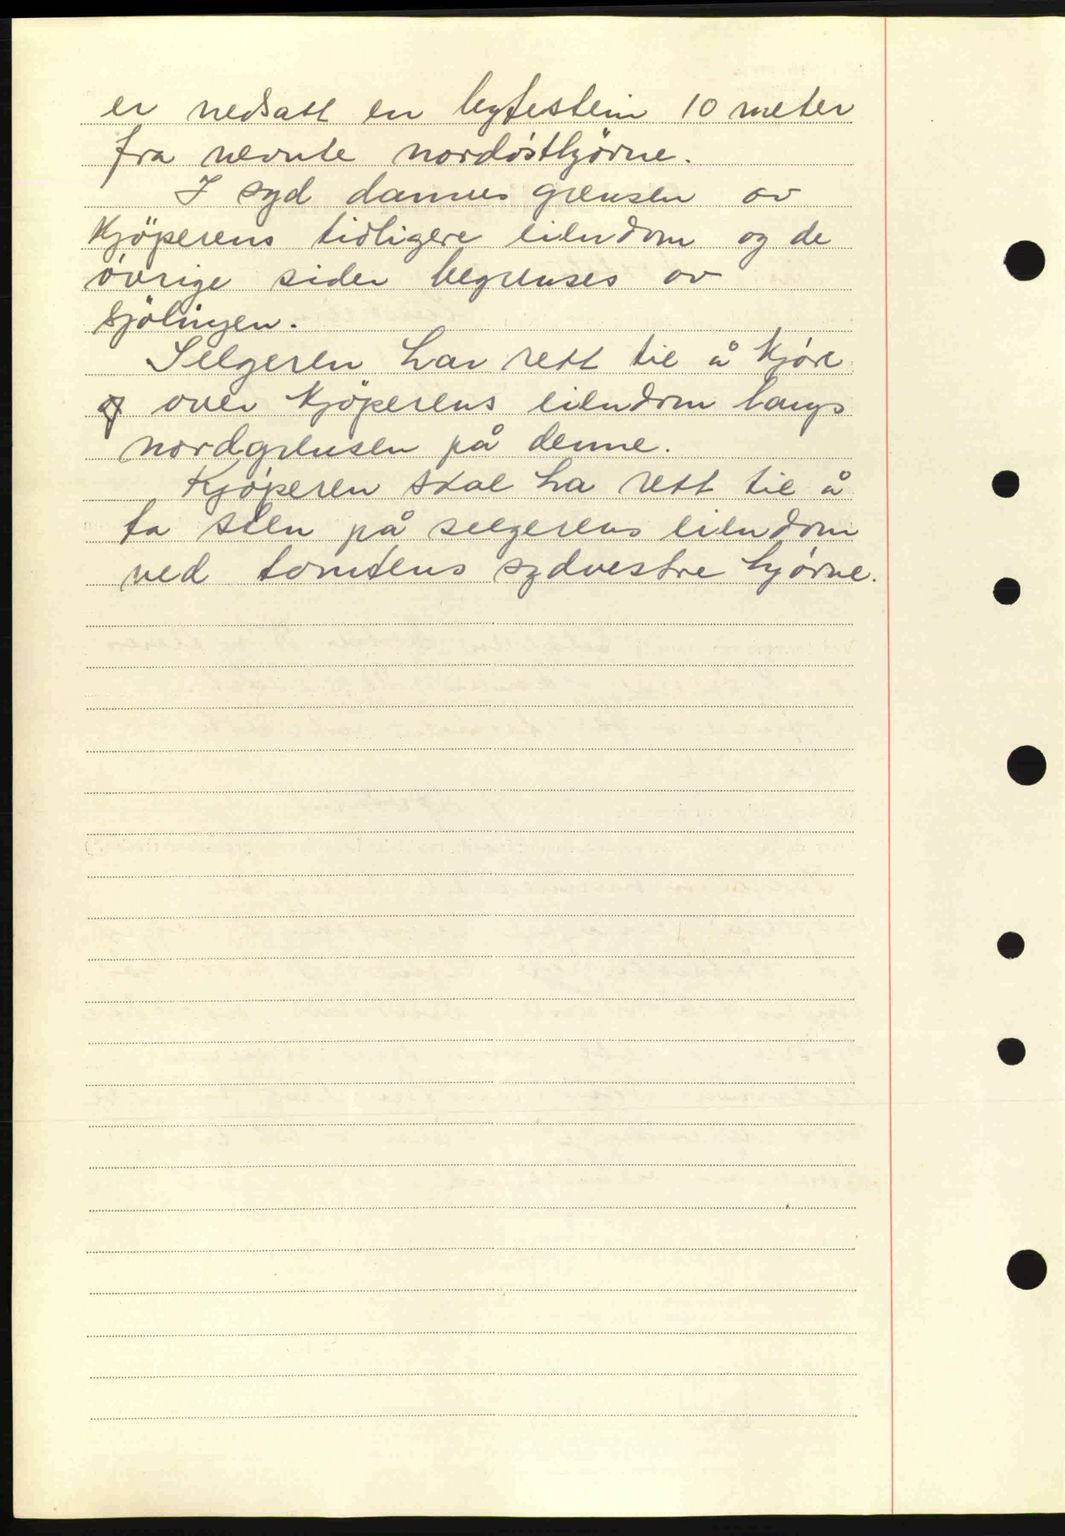 er nedsatt en bytestein 10 meter
fra nevnte nordösthjörne.
I syd dannes grensen av
Kjöperens tidligere eiendom og de
övrige sider begrenses av
Sjölinjen.
Selgeren har rett til å kjöre
over Kjöperens eiendom langs
nordgrensen på denne.
Kjöperen skal ha rett til å
ta sten på selgerens eiendom
ved tomtens sydvestre hjörne.